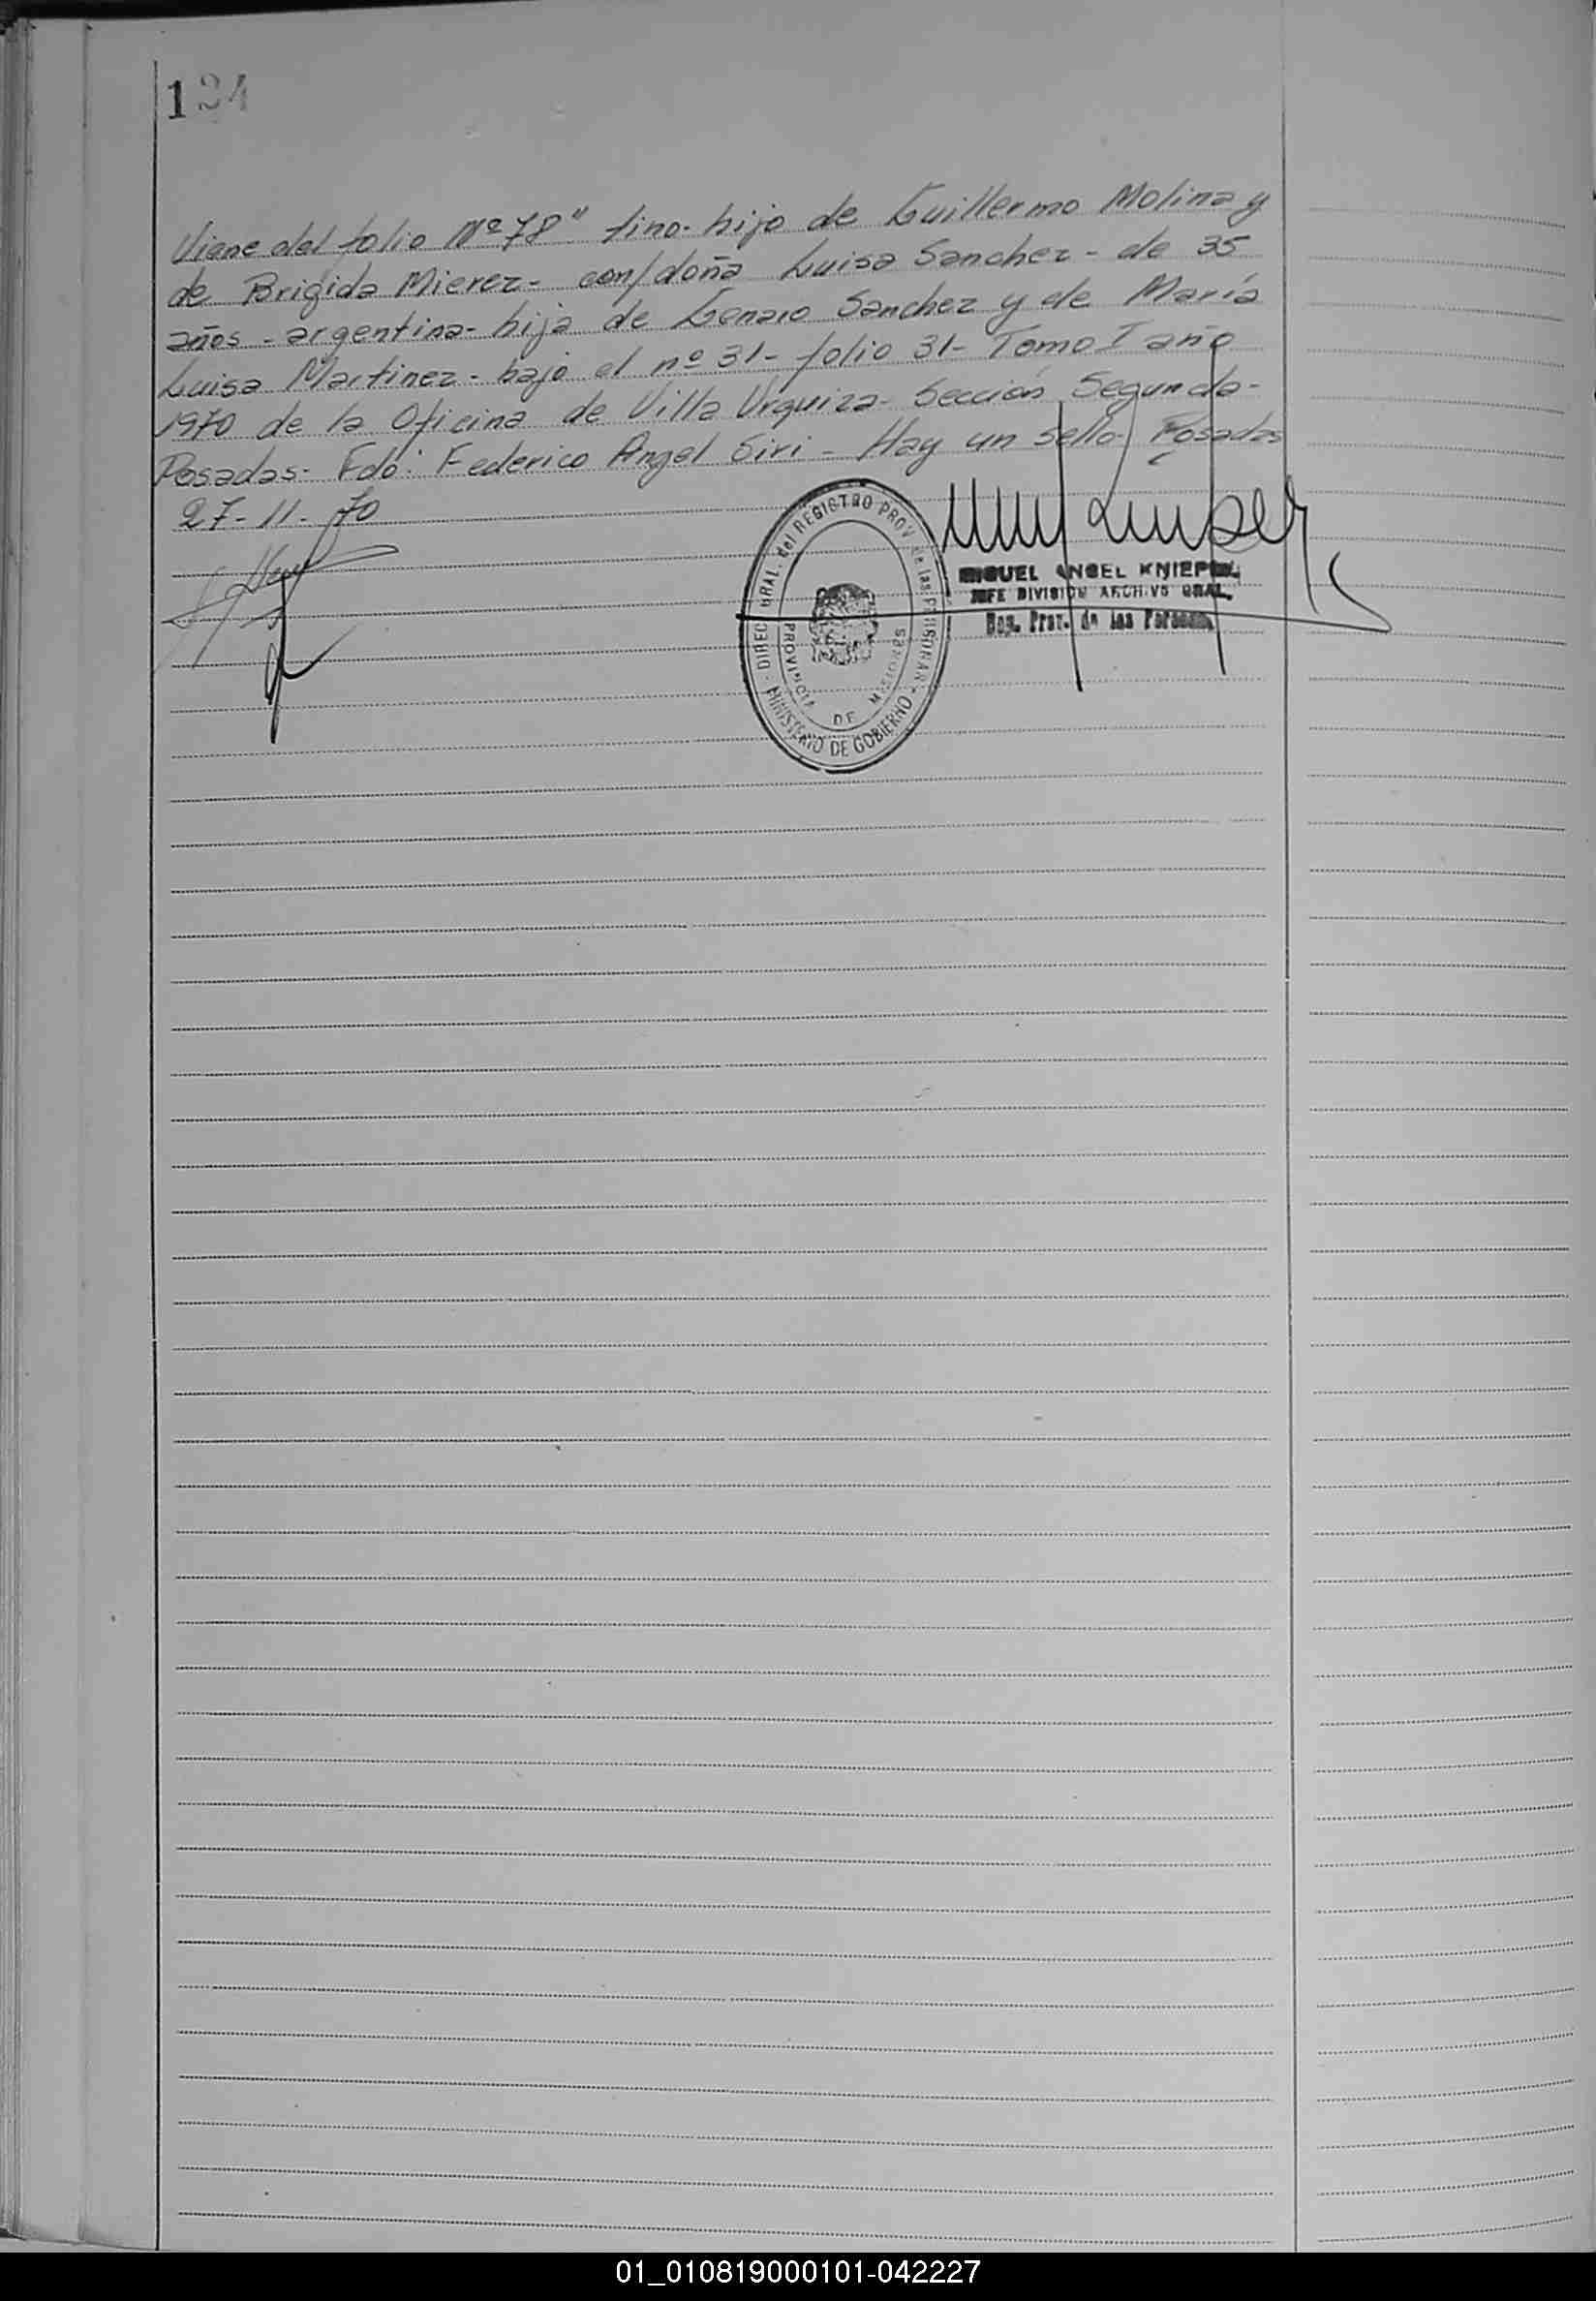 124
Viene del folio Nº 78" tino- hijo de Guillermo Molina y
de Brigida Mierez- con/doña Luisa Sanchez- de 35
años - argentina- hija de Genaro Sanchez y de María
Luisa Martinez- bajo el nº 31- folio 31- Tomo I año
1970 de la Oficina de Villa Urquiza- Sección Segunda-
Posadas- Fdo: Federico Angel Siri - Hay un sello- Posadas
27-11-70
DIREC. GRAL. del REGISTRO PROV. de las PERSONAS
PROVINCIA DE MISIONES
MINISTERIO DE GOBIERNO
MIGUEL ANGEL
JEFE DIVISION ARCHIVO GRAL.
Reg. Prov. de las Personas
01_010819000101-042227